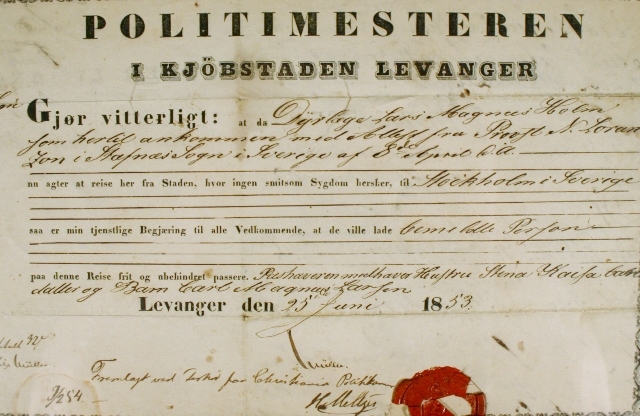 POLITIMESTEREN
I KJÖBSTADEN LEVANGER
Gjør vitterligt: at da Dyrlæge Lars Magnus Holm
som hertil ankommen med Attest fra Provst N. Loran
zon i Stafnæs Sogn i Sverige af 8de April d.A.
nu agter at reise her fra Staden, hvor ingen smitsom Sygdom hersker, til Stockholm i Sverige
saa er min tjenstlige Begjæring til alle Vedkommende, at de ville lade bemeldte Person
paa denne Reise frit og ubehindret passere. Pashaveren medhaver Hustru Stina Kaisa
datter og Barn Carl Magnus Larsen
Levanger den 25 Juni 1853.
Müller
Fremlagt ved for Christiania